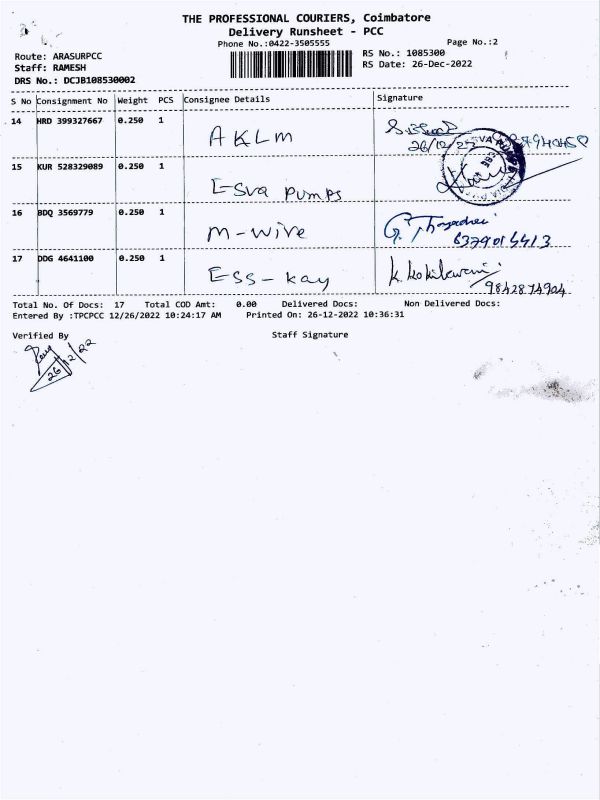 THE PROFESSIONAL COURIERS, Coimbatore
Delivery Runsheet - PCC
Phone No.:0422-3505555
Page No.:2
Route: ARASURPCC
RS No.: 1085300
Staff: RAMESH
RS Date: 26-Dec-2022
DRS No.: DCJB108530002
S No Consignment No Weight PCS Consignee Details Signature
14 HRD 399327667 0.250 1 AKLM
26/12/22
15 KUR 528329089 0.250 1 Esva Pumps
16 BDQ 3569779 0.250 1 M-wire
17 DDG 4641100 0.250 1 ESS-kay K. Kokilavani
9842874924
Total No. Of Docs: 17 Total COD Amt: 0.00 Delivered Docs: Non Delivered Docs:
Entered By :TPCPCC 12/26/2022 10:24:17 AM Printed On: 26-12-2022 10:36:31
Verified By Staff Signature
26/12/22